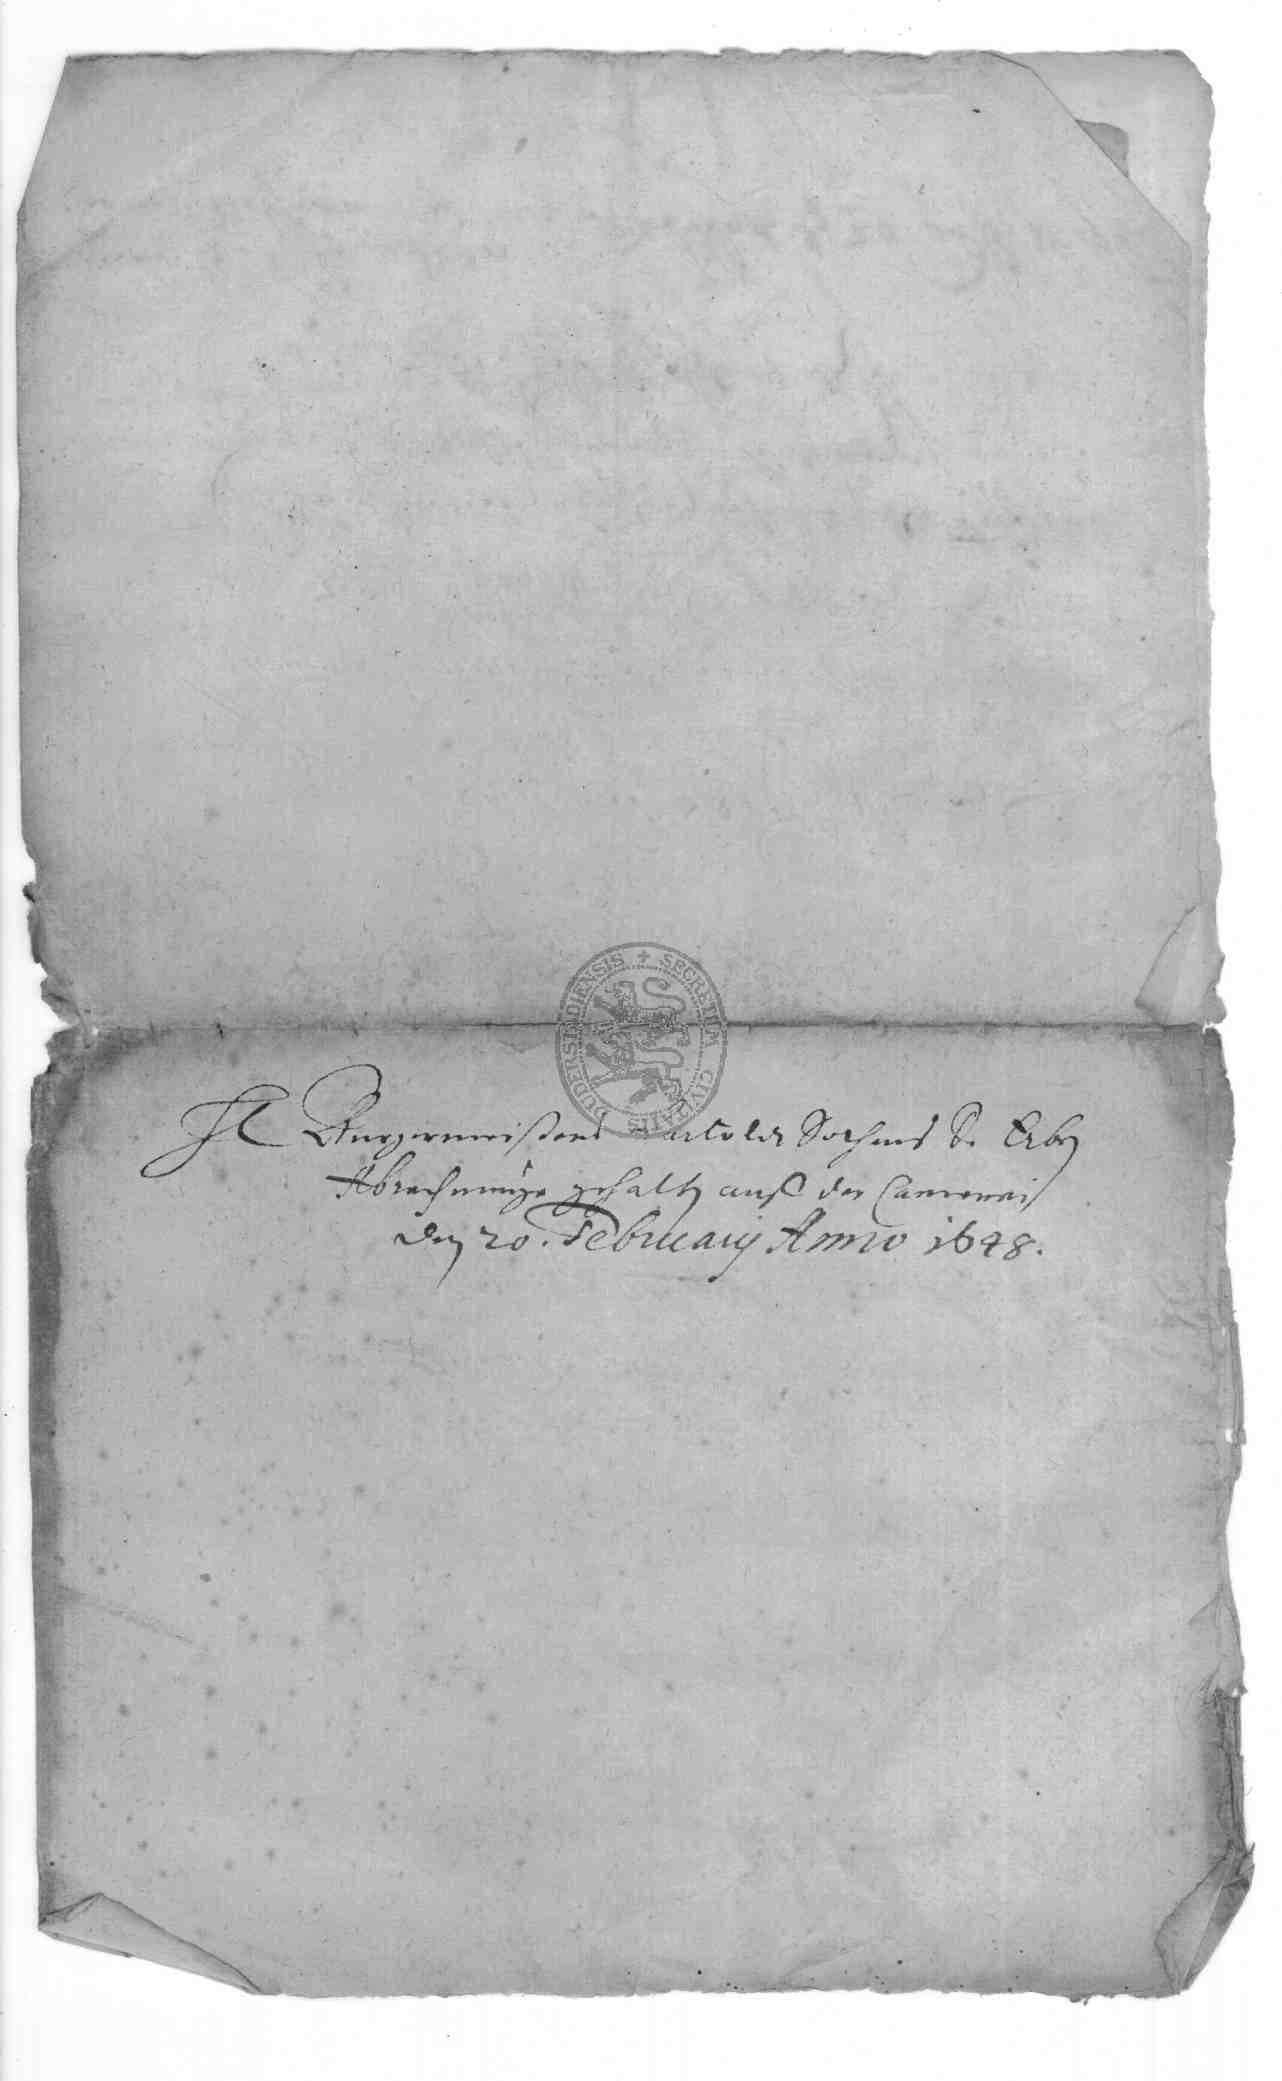 SECRETUM CIVITATIS DUDERSTADIENSIS
H Burgermeisters Bartoldi Sothens S. Erben
Abrechnunge gehalten auß der Cammerei
den 20. February Anno 1648.